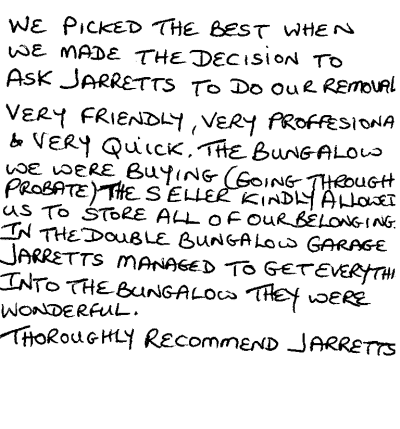 WE PICKED THE BEST WHEN
WE MADE THE DECISION TO
ASK JARRETTS TO DO OUR REMOVAL
VERY FRIENDLY, VERY PROFFESIONA
& VERY QUICK. THE BUNGALOW
WE WERE BUYING (GOING THROUGH
PROBATE) THE SELLER KINDLY ALLOWE
US TO STORE ALL OF OUR BELONGING
IN THE DOUBLE BUNGALOW GARAGE
JARRETTS MANAGED TO GET EVERYTHI
INTO THE BUNGALOW THEY WERE
WONDERFUL.
THOROUGHLY RECOMMEND JARRETTS